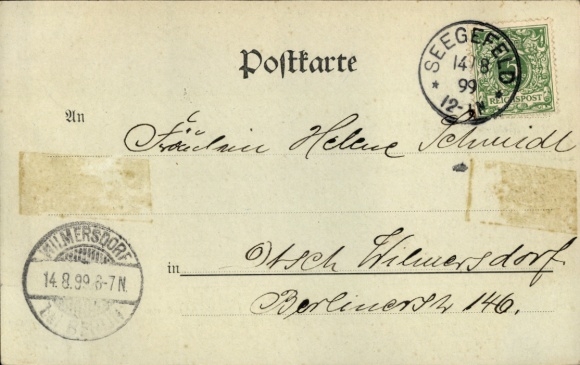 Postkarte
SEEGEFELD
14/8
99
12-1N
5
REICHSPOST
An
Fräulein Helene Schmidt
WILMERSDORF
14.8.99.6-7N.
in Dtsch Wilmersdorf
Berlinerstr 146.